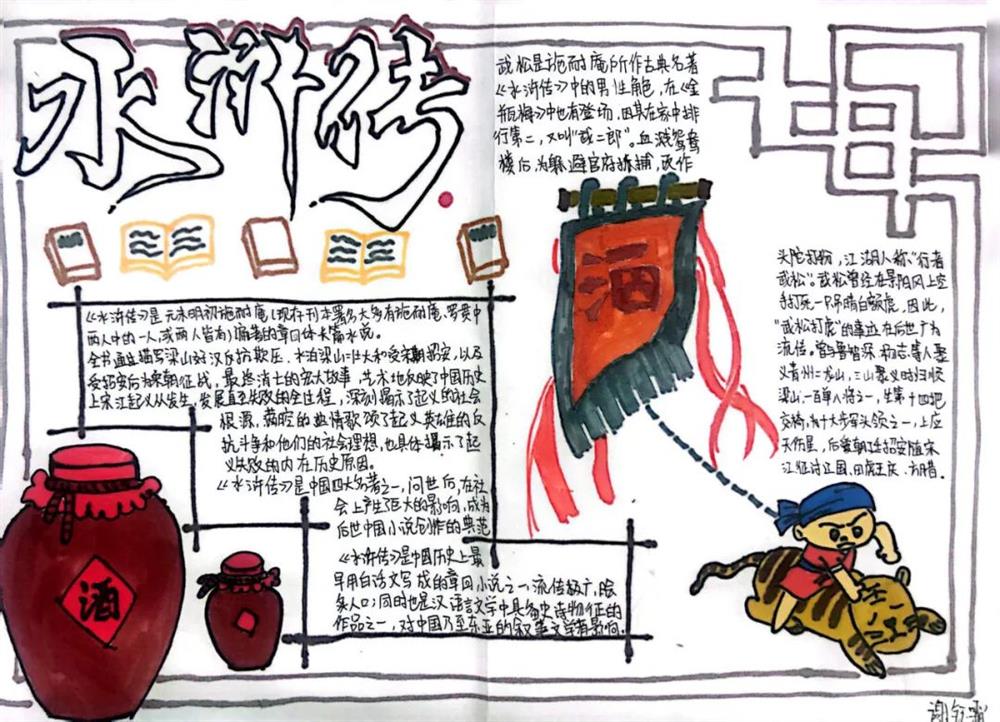 水浒传
《水浒传》是元末明初施耐庵(现存刊本署名大多有施耐庵、罗贯中
两人中的一人,或两人皆有)编著的章回体长篇小说。
全书通过描写梁山好汉反抗欺压、水泊梁山壮大和受宋朝招安,以及
受招安后为宋朝征战,最终消亡的宏大故事,艺术地反映了中国历史
上宋江起义从发生、发展直至失败的全过程,深刻揭示了起义的社会
根源,满腔的热情歌颂了起义英雄的反
抗斗争和他们的社会理想,也具体揭示了起
义失败的内在历史原因。
《水浒传》是中国四大名著之一,问世后,在社
会上产生了巨大的影响,成为
后世中国小说创作的典范
《水浒传》是中国历史上最
早用白话文写成的章回小说之一,流传极广,脍
炙人口;同时也是汉语言文学中具备史诗特征的
作品之一,对中国乃至东亚的叙事文学有影响.
酒
武松是施耐庵所作古典名著
《水浒传》中的男性角色,在《金
瓶梅》中也有登场,因其在家中排
行第二,又叫"武二郎"。血溅鸳鸯
楼后,为躲避官府抓捕,改作
酒
头陀打扮,江湖人称"行者
武松"。武松曾经在景阳冈上空
手打死一只吊睛白额虎,因此,
"武松打虎"的事迹在后世广为
流传。曾与鲁智深 杨志等人聚
义青州二龙山,三山聚义时归顺
梁山,一百单八将之一,坐第十四把
交椅,为十大步军头领之一,上应
天伤星,后受朝廷招安随宋
江征讨辽国,田虎王庆、方腊.
谢